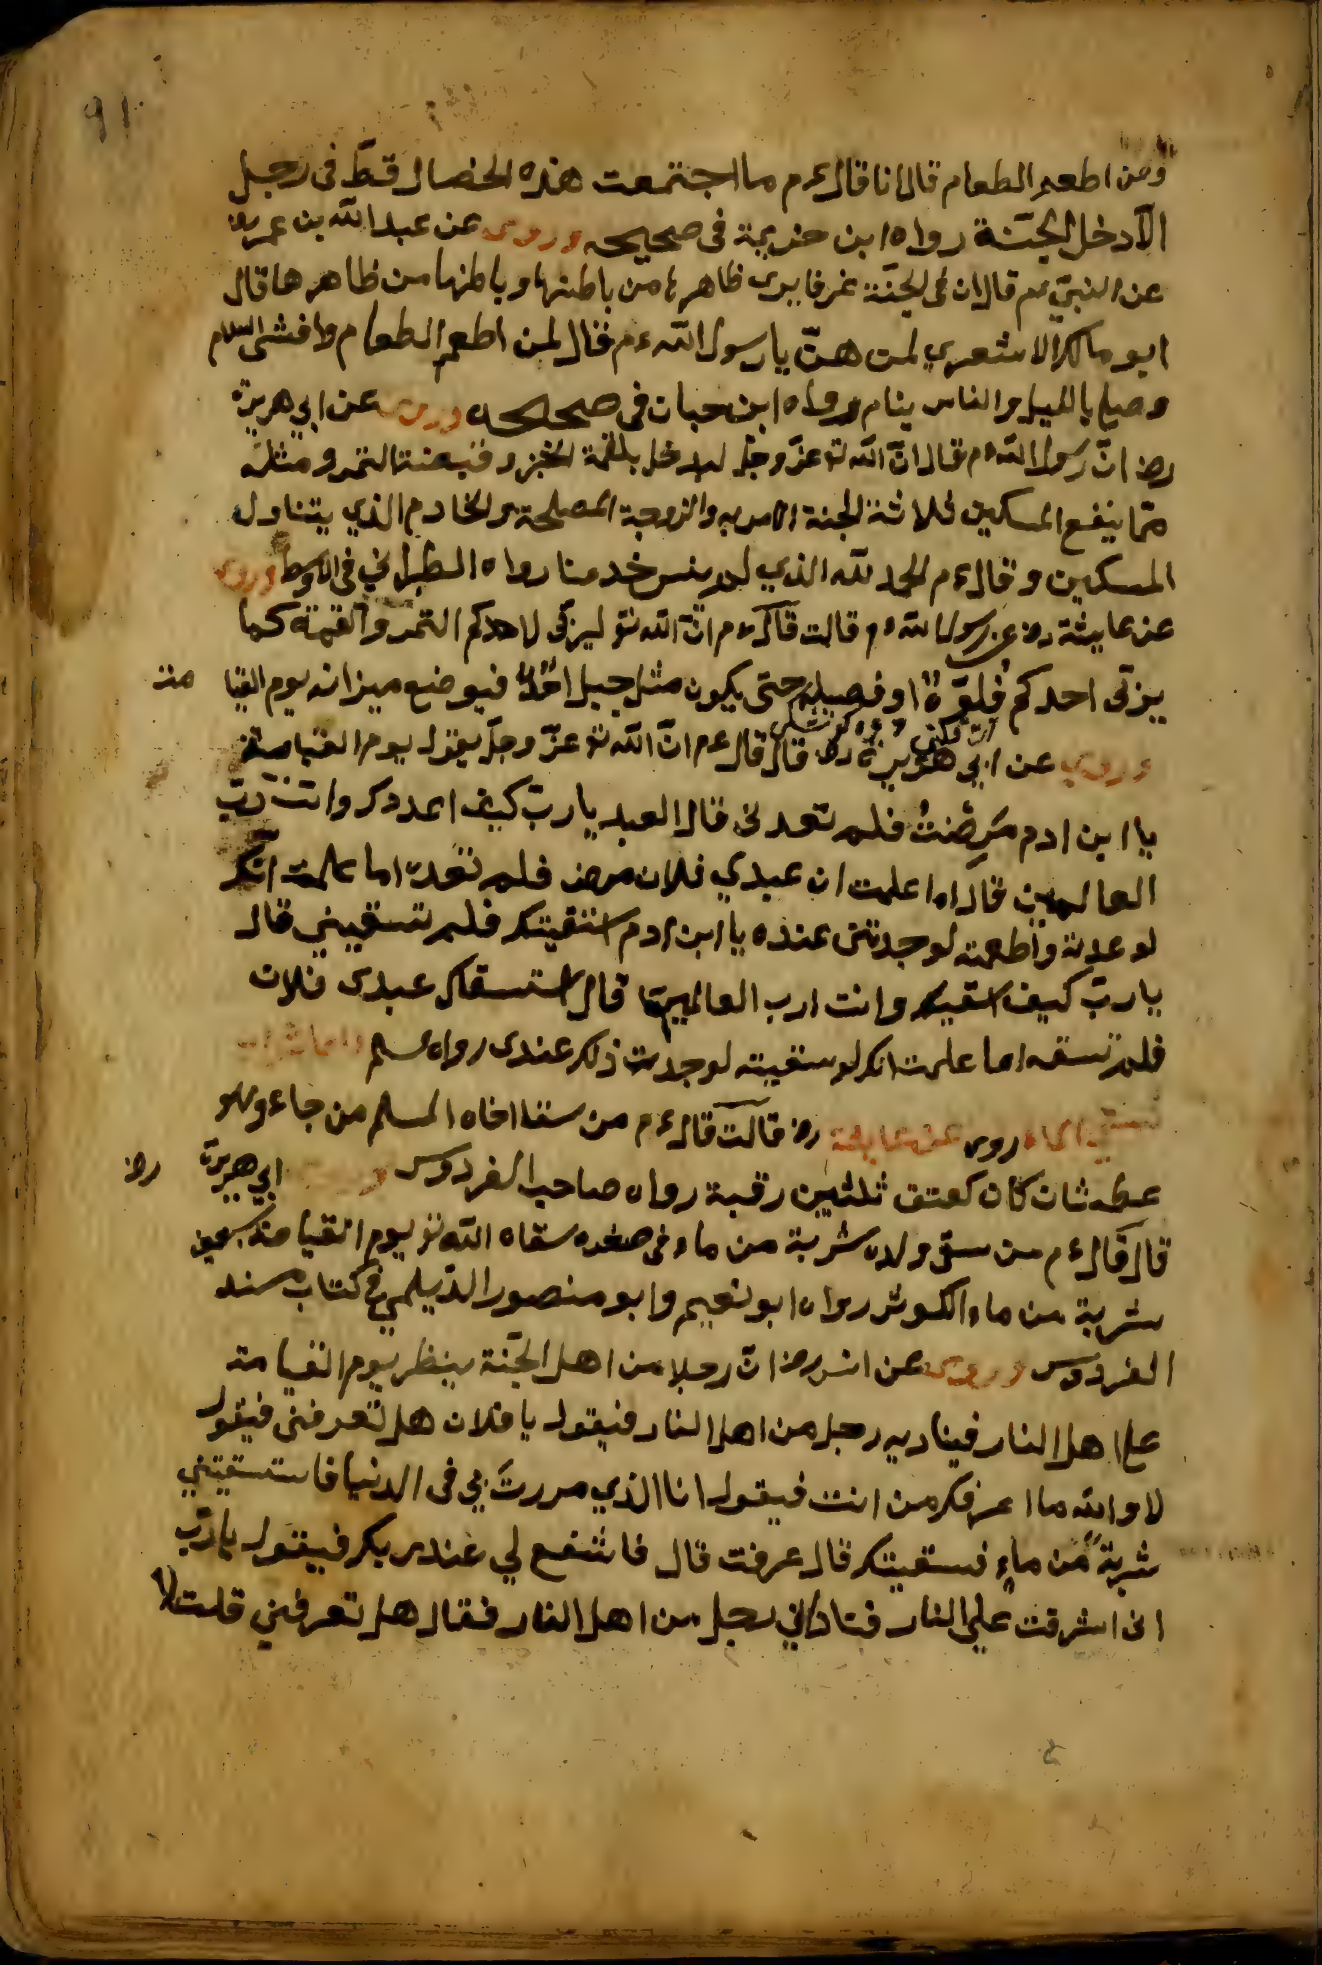 ٩١
ومن اطعم الطعام قال انا قال ءم ما اجتمعت هذه الخصال قط فى رجل
الا دخل الجنة رواه ابن خزيمة فى صحيحه وروى عن عبد الله بن عمر رض
عن النبى عم قال ان فى الجنة غرفا يرى ظاهرها من باطنها وباطنها من ظاهرها قال
ابو مالك الاشعري لمن هنّ يا رسول الله ءم فقال لمن اطعم الطعام وافشى السلام
وصلى بالليل والناس ينام ورواه ابن حبان فى صحيحه وروى عن ابي هريرة
رض ان رسول الله ءم قال انّ الله تع عزّ وجلّ ليدخل بلقمة الخبز وقبضة التمر ومثله
مما ينفع المسكين ثلاثة الجنة الآمر به والزوجة المصلحة والخادم الذي يتناول
المسكين وقال ءم الحمد لله الذي لم ينس خدمنا رواه الطبراني فى الاوسط وروى
عن عايشة رض عن رسول الله ءم قالت قال ءم انّ الله تع ليربى لاحدكم التمر والقمة كما
يربى احدكم فُلوّهُ او فصيله حتى يكون مثل جبل اُحُد فيوضع ميزانه يوم القيا مة
وروي عن ابي هريرة رض قال قال ءم انّ الله تع عزّ وجلّ يقول يوم القيامة
يا ابن ادم مَرِضْتُ فلم تعدنى قال العبد يا ربّ كيف اعدك وانت ربّ
العالمين قال اما علمت ان عبدي فلان مرض فلم تعده اما علمت انّك
لو عدته واطعمته لوجدتنى عنده يا ابن ادم استقيتك فلم تسقيني قال
يا ربّ كيف اسقيك وانت رب العالمين قال استسقاك عبدى فلان
فلم تسقه اما علمت انك لو سقيته لوجدت ذلك عندى رواه مسلم
الماء روى عن عايشة رض قالت قال ءم من سقا اخاه المسلم من جاء وهو
عطشان كان كعتق ثلثين رقبة رواه صاحب الفردوس وروى ابي هريرة رض
قال قال ءم من سقى ولده شربة من ماء فى صغره سقاه الله تع يوم القيامة سبعين
شربة من ماء الكوثر رواه ابو نعيم وابو منصور الديلمي فى كتاب مسند
الفردوس وروى عن انس رض انّ رجلا من اهل الجنّة ينظر يوم القيامة
على اهل النار فيناديه رجل من اهل النار فيقول يا فلان هل تعرفنى فيقول
لا والله ما اعرفك من انت فيقول انا الذي مررتَ بي فى الدنيا فاستسقيتني
شربة من ماء فسقيتك قال عرفت قال فاشفع لي عند ربك فيقول يا ربّ
انى اشرفت على النار فناداني رجل من اهل النار فقال هل تعرفني قلت لا